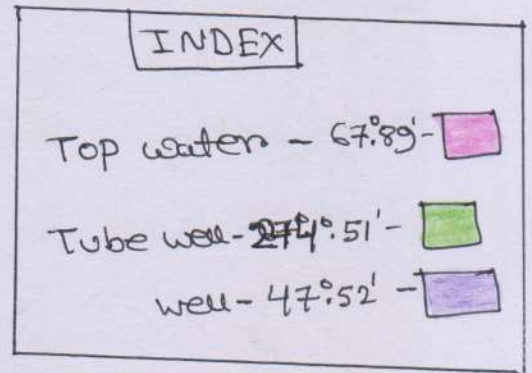 INDEX
Top water - 67°.89'-
Tube well - 274°.51' -
well - 47°.52' -